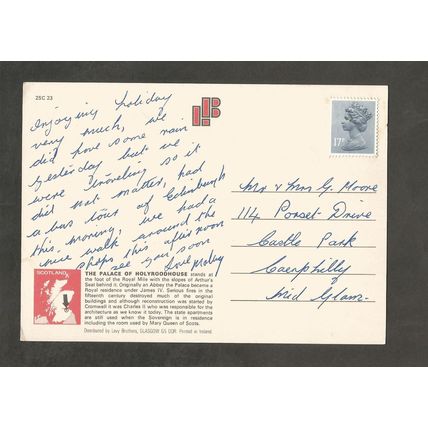 25C 23
Enjoying holiday
very much, we
did have some rain
yesterday but we
were traveling so it
did not matter, had
a bus tour of Edinburgh
this morning, we had a
nice walk around the
shops this afternoon
see you soon
love
17P
Mr & Mrs G. Moore
114 Porset Drive
Castle Park
Caerphilly
Mid Glam.
SCOTLAND
THE PALACE OF HOLYROODHOUSE stands at
the foot of the Royal Mile with the slopes of Arthur's
Seat behind it. Originally an Abbey the Palace became a
Royal residence under James IV. Serious fires in the
fifteenth century destroyed much of the original
buildings and although reconstruction was started by
Cromwell it was Charles II who was responsible for the
architecture as we know it today. The state apartments
are still used when the Sovereign is in residence
including the room used by Mary Queen of Scots.
Distributed by Levy Brothers, GLASGOW G5 0QR. Printed in Ireland.